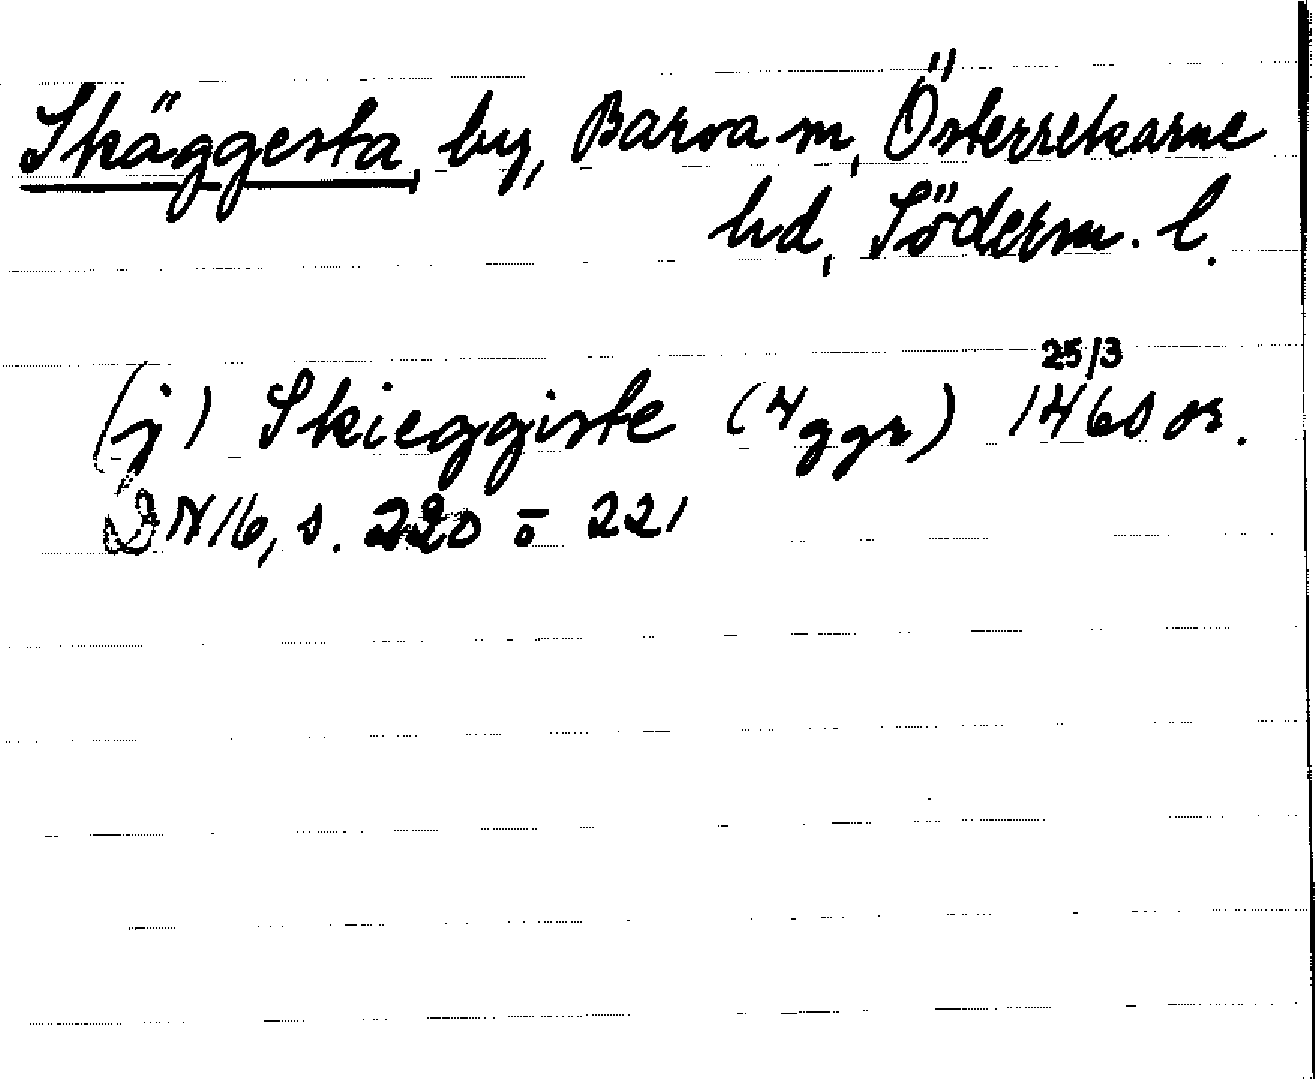 Skäggesta, by, Barva sn, Österrekarne
hd, Söderm. l.
25/3
(j) Skieggiste (4 ggr) 1460 or.
N 16, s. 220 o 221